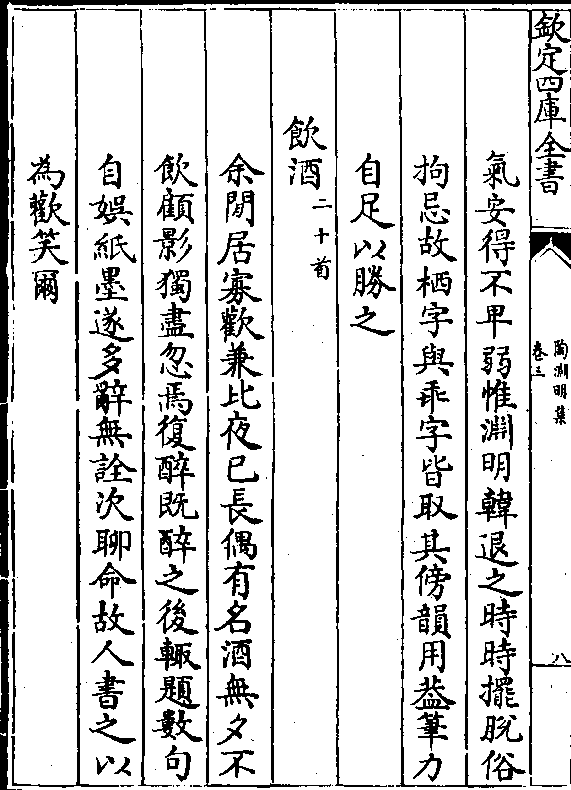 欽定四庫全書
陶淵明集
卷三
八
氣安得不卑弱惟淵明韓退之時時擺脫俗
拘忌故栖字與乖字皆取其傍韻用葢筆力
自足以勝之
飲酒二十首
余閒居寡歡兼比夜已長偶有名酒無夕不
飲顧影獨盡忽焉復醉既醉之後輙題數句
自娯紙墨遂多辭無詮次聊命故人書之以
為歡笑爾